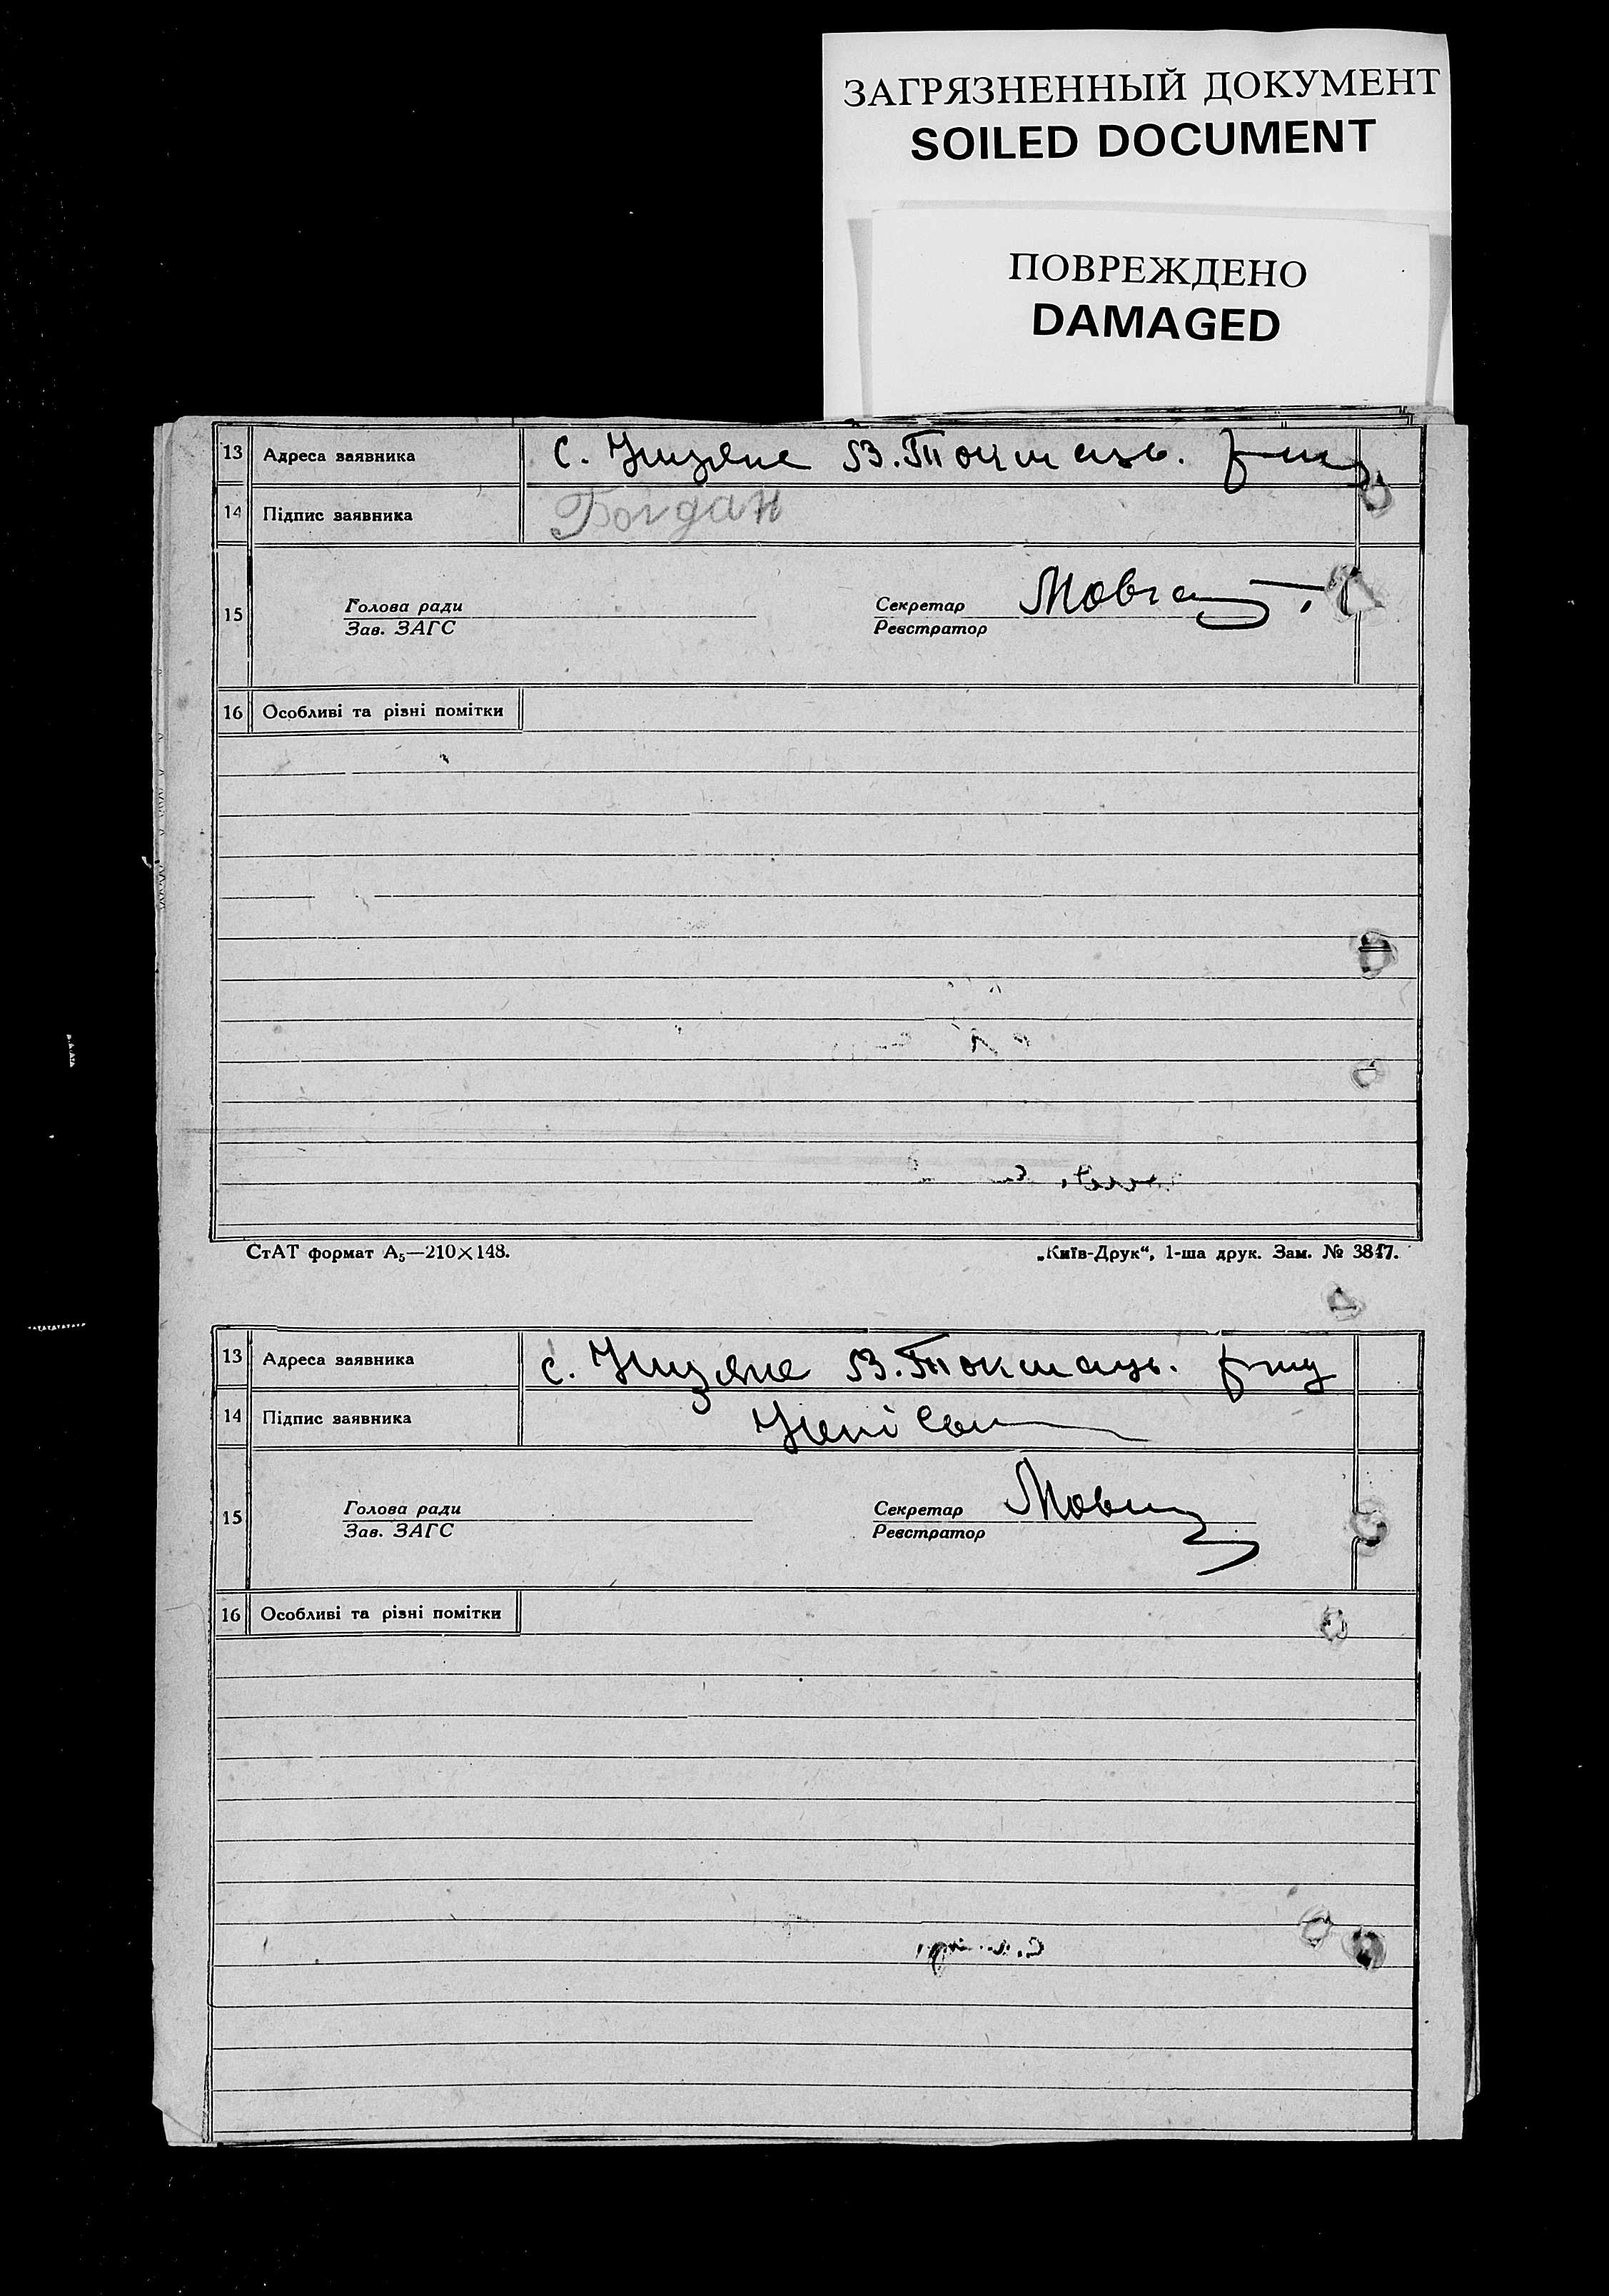 ЗАГРЯЗНЕННЫЙ ДОКУМЕНТ
SOILED DOCUMENT
ПОВРЕЖДЕНО
DAMAGED
13 Адреса заявника с. В.Токмаць.
14 Підпис заявника Богдан
15 Голова ради Секретар
Зав. ЗАГС Реєстратор
16 Особливі та різні помітки
СтАТ формат А₅—210×148. „Київ-Друк“, 1-ша друк. Зам. № 3847.
13 Адреса заявника с. В.Токмаць.
14 Підпис заявника
15 Голова ради Секретар
Зав. ЗАГС Реєстратор
16 Особливі та різні помітки